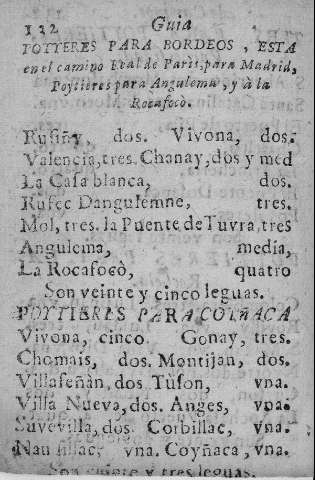 132 Guia
POYTIERES PARA BORDEOS, ESTA
en el camino Real de Paris, para Madrid,
Poytieres para Angulema, y à la
Rocafocò.
Rufiñy, dos. Vivona, dos.
Valencia, tres. Chanay, dos y med
La Casa blanca, dos.
Rufec Dangulemne, tres.
Mol, tres. la Puente de Tuvra, tres
Angulema, media,
La Rocafocò, quatro
Son veinte y cinco leguas.
POYTIERES PARA COYÑACA
Vivona, cinco. Gonay, tres.
Chomais, dos. Montijan, dos.
Villafeñàn, dos Tuson, vna.
Villa Nueva, dos. Anges, vna.
Suvevilla, dos. Corbillac, vna.
Nausillac, vna. Coyñaca, vna.
Son veinte y tres leguas.